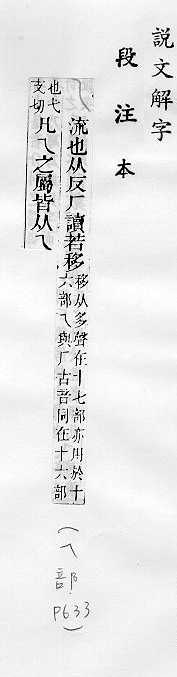 說文解字
段注本
流也从反厂讀若移
移从多聲在十七部亦用於十
六部乁與厂古音同在十六部
也弋
支切
凡乁之屬皆从乁
(乁部.P633)